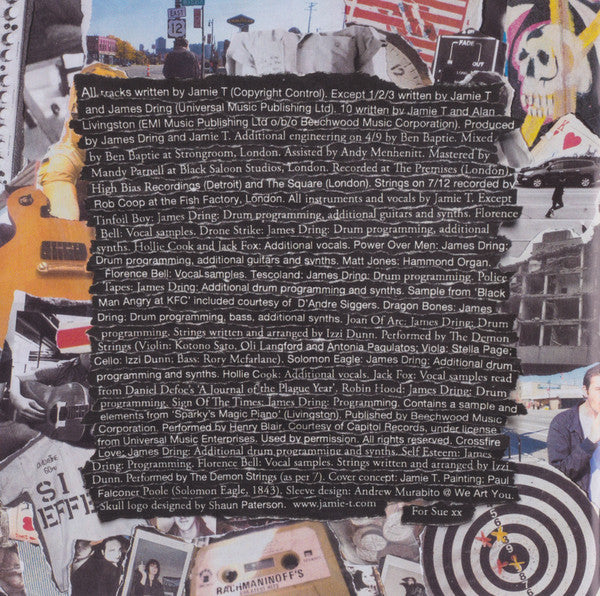 EAST
12
FADE
OUT
All tracks written by Jamie T (Copyright Control). Except 1/2/3 written by Jamie T
and James Dring (Universal Music Publishing Ltd). 10 written by Jamie T and Alan
Livingston (EMI Music Publishing Ltd o/b/o Beechwood Music Corporation). Produced
by James Dring and Jamie T. Additional engineering on 4/9 by Ben Baptie. Mixed
by Ben Baptie at Strongroom, London. Assisted by Andy Menhenitt. Mastered by
Mandy Parnell at Black Saloon Studios, London. Recorded at The Premises (London),
High Bias Recordings (Detroit) and The Square (London). Strings on 7/12 recorded by
Rob Coop at the Fish Factory, London. All instruments and vocals by Jamie T. Except
Tinfoil Boy: James Dring: Drum programming, additional guitars and synths. Florence
Bell: Vocal samples. Drone Strike: James Dring: Drum programming, additional
synths. Hollie Cook and Jack Fox: Additional vocals. Power Over Men: James Dring:
Drum programming, additional guitars and synths. Matt Jones: Hammond Organ.
Florence Bell: Vocal samples. Tescoland: James Dring: Drum programming. Police
Tapes: James Dring: Additional drum programming and synths. Sample from 'Black
Man Angry at KFC' included courtesy of D'Andre Siggers. Dragon Bones: James
Dring: Drum programming, bass, additional synths. Joan Of Arc: James Dring: Drum
programming. Strings written and arranged by Izzi Dunn. Performed by The Demon
Strings (Violin: Kotono Sato, Oli Langford and Antonia Pagulatos; Viola: Stella Page;
Cello: Izzi Dunn; Bass: Rory Mcfarlane). Solomon Eagle: James Dring: Additional drum
programming and synths. Hollie Cook: Additional vocals. Jack Fox: Vocal samples read
from Daniel Defoe's 'A Journal of the Plague Year'. Robin Hood: James Dring: Drum
programming. Sign Of The Times: James Dring: Programming. Contains a sample and
elements from 'Sparky's Magic Piano' (Livingston). Published by Beechwood Music
Corporation. Performed by Henry Blair. Courtesy of Capitol Records, under license
from Universal Music Enterprises. Used by permission. All rights reserved. Crossfire
Love: James Dring: Additional drum programming and synths. Self Esteem: James
Dring: Programming. Florence Bell: Vocal samples. Strings written and arranged by Izzi
Dunn. Performed by The Demon Strings (as per 7). Cover concept: Jamie T. Painting: Paul
Falconer Poole (Solomon Eagle, 1843). Sleeve design: Andrew Murabito @ We Art You.
Skull logo designed by Shaun Paterson. www.jamie-t.com For Sue xx
RACHMANINOFF'S